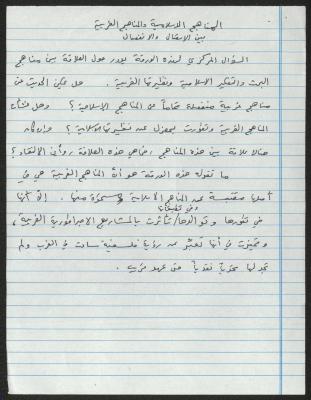 المناهج الاسلامية والمناهج الغربية
بين الاتصال والانفصال
السؤال المركزي لهذه الورقة يدور حول العلاقة بين مناهج
البحث والتفكير الاسلامية ونظيرتها الغربية. هل يمكن الحديث عن
مناهج غربية منفصلة تماماً عن المناهج الإسلامية؟ وهل نشأت
المناهج الغربية وتطورت بمعزل عن نظيرتها الاسلامية؟ وإن كان
هنالك علاقة بين هذه المناهج، فما هي هذه العلاقة، وأين الالتقاء؟
ما تقوله هذه الورقة هو أنّ المناهج الغربية هي في
أصلها مقتبسة عن المناهج الاسلامية ومستمدة منها. إلا أنها
وفي تطبيقاتها
في تطورها تأثرت بالمشاريع الامبراطورية الغربية،
وتميزت في أنها تعبّر عن رؤيا فلسفية سادت في الغرب ولم
نقدياً حتى عهد قريب.